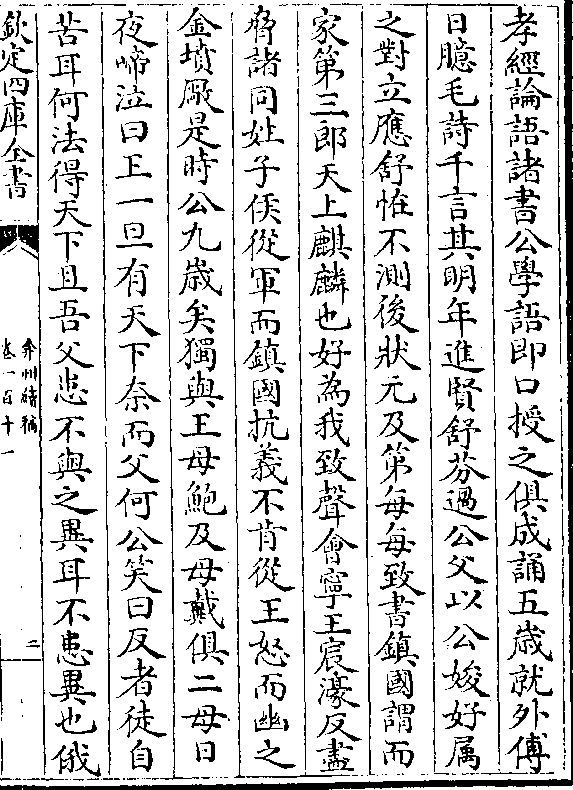 孝經論語諸書公學語即口授之俱成誦五歲就外傅
日臆毛詩千言其明年進賢舒芬過公父以公姣好属
之對立應舒惟不測後狀元及第每每致書鎮國謂而
家第三郎天上麒麟也好為我致聲會寧王宸濠反盡
脅諸同姓子侯從軍而鎮國抗義不肯從王怒而幽之
金墳厰是時公九歲矣獨與王母鮑及母戴俱二母日
夜啼泣曰王一旦有天下奈而父何公笑曰反者徒自
苦耳何法得天下且吾父患不與之異耳不患異也俄
欽定四庫全書
弇州續稿
卷一百十一
二